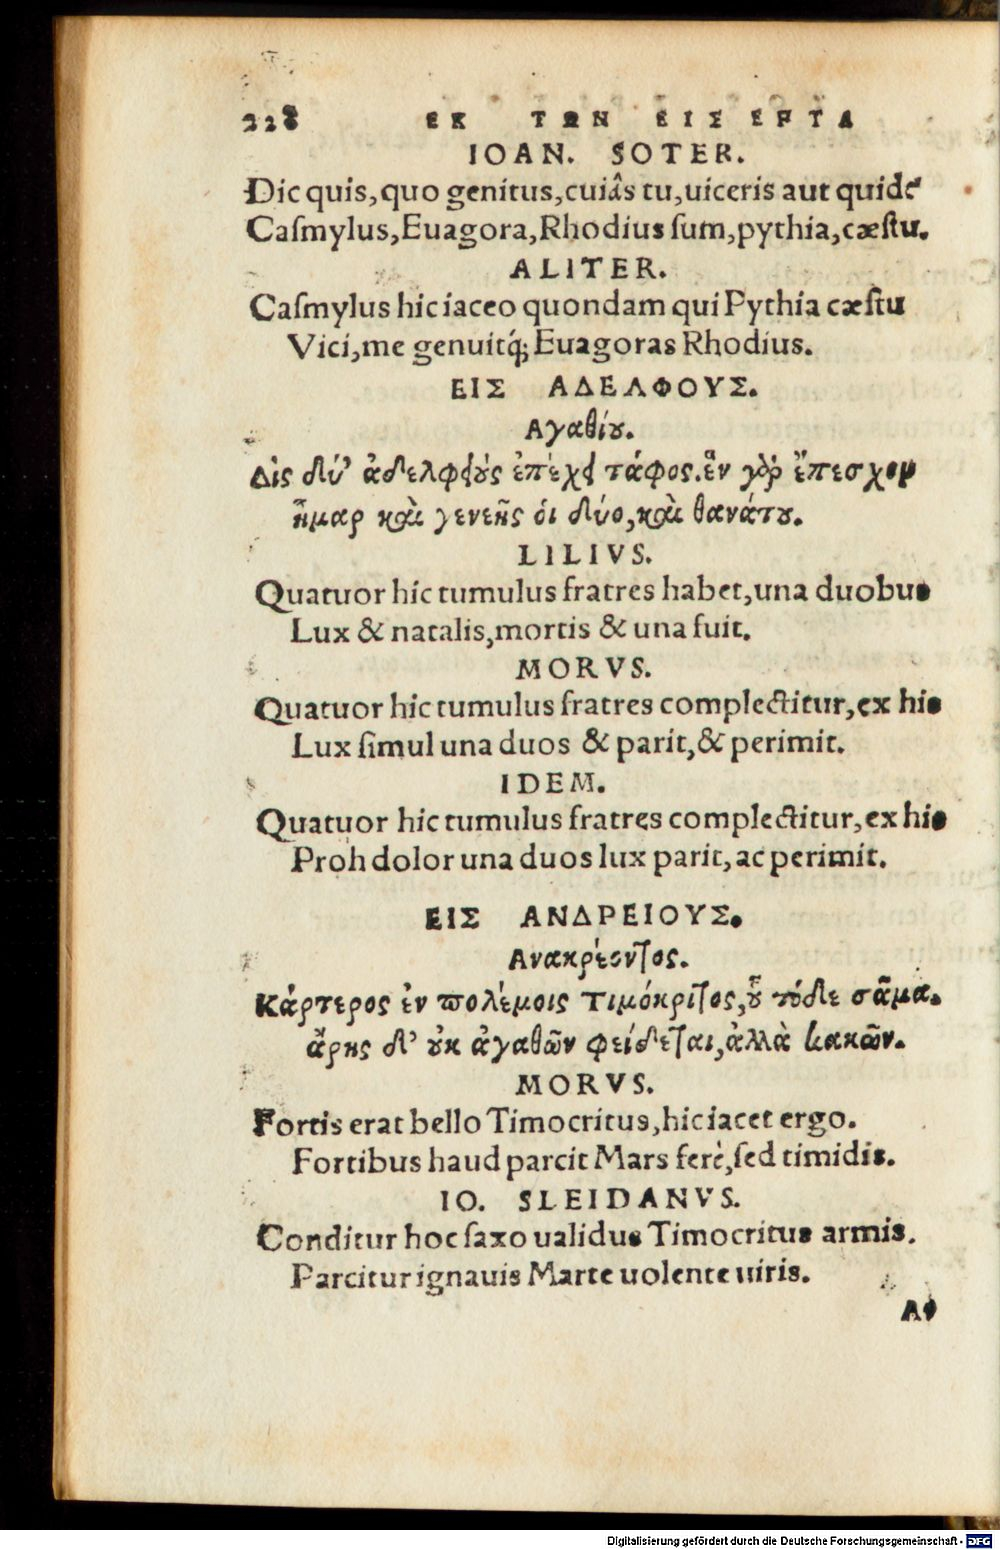 228 ΕΚ ΤΩΝ ΕΙΣ ΕΡΤΑ
IOAN. SOTER.
Dic quis, quo genitus, cuiâs tu, uiceris aut quid?
Caſmylus, Euagora, Rhodius ſum, pythia, cæſtu.
ALITER.
Caſmylus hic iaceo quondam qui Pythia cæſtu
Vici, me genuitq́; Euagoras Rhodius.
ΕΙΣ ΑΔΕΛΦΟΥΣ.
Αγαθίȣ.
Δὶς δύ’ ἀδελφειȣ̀ς ἐπέχει τάφος. ἓν γὰρ ἔπεσχον
ἦμαρ καὶ γενεῆς ὁι δύο, καὶ θανάτȣ.
LILIVS.
Quatuor hic tumulus fratres habet, una duobus
Lux & natalis, mortis & una fuit.
MORVS.
Quatuor hic tumulus fratres complectitur, ex his
Lux ſimul una duos & parit, & perimit.
IDEM.
Quatuor hic tumulus fratres complectitur, ex his
Proh dolor una duos lux parit, ac perimit.
ΕΙΣ ΑΝΔΡΕΙΟΥΣ.
Ανακρέοντος.
Κάρτερος ἐν πολέμοις Τιμόκριτος, ȣ̓͂ τόδε σᾶμα.
ἄρης δ’ ȣ̓κ ἀγαθῶν φείδεται, ἀλλὰ κακῶν.
MORVS.
Fortis erat bello Timocritus, hic iacet ergo.
Fortibus haud parcit Mars ferè, ſed timidis.
IO. SLEIDANVS.
Conditur hoc ſaxo ualidus Timocritus armis.
Parcitur ignauis Marte uolente uiris.
Digitalisierung gefördert durch die Deutsche Forschungsgemeinschaft - DFG